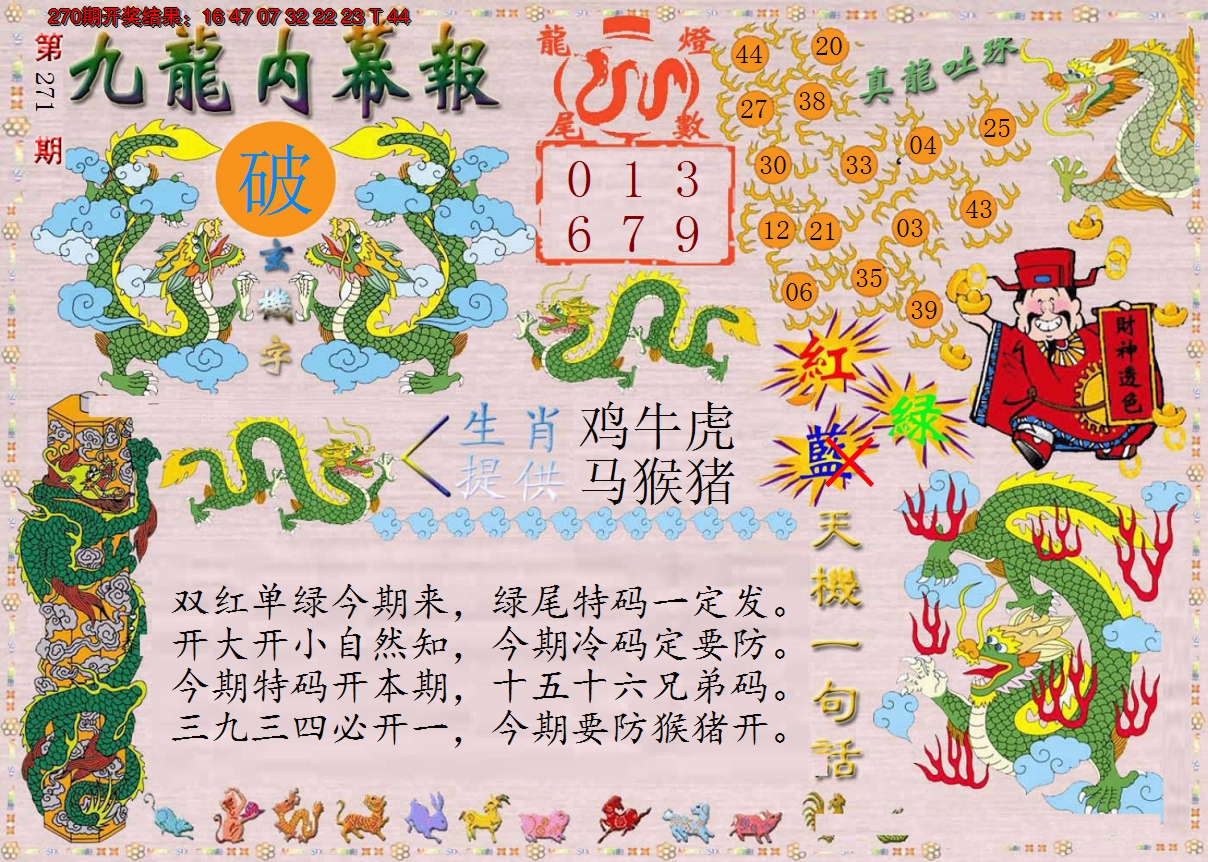 270期开奖结果：16 47 07 32 22 23 T 44
第271期
九龍内幕報
破
玄機字
龍燈尾數
0 1 3
6 7 9
真龍吐珠
44 20
27 38
30 33 04 25
12 21 03 43
06 35 39
財神透色
紅
绿
藍
生肖提供
鸡牛虎
马猴猪
双红单绿今期来，绿尾特码一定发。
开大开小自然知，今期冷码定要防。
今期特码开本期，十五十六兄弟码。
三九三四必开一，今期要防猴猪开。
天機一句話